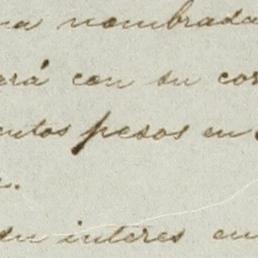 na nombrada
ará con su cor
entos pesos en
n.
su interes en